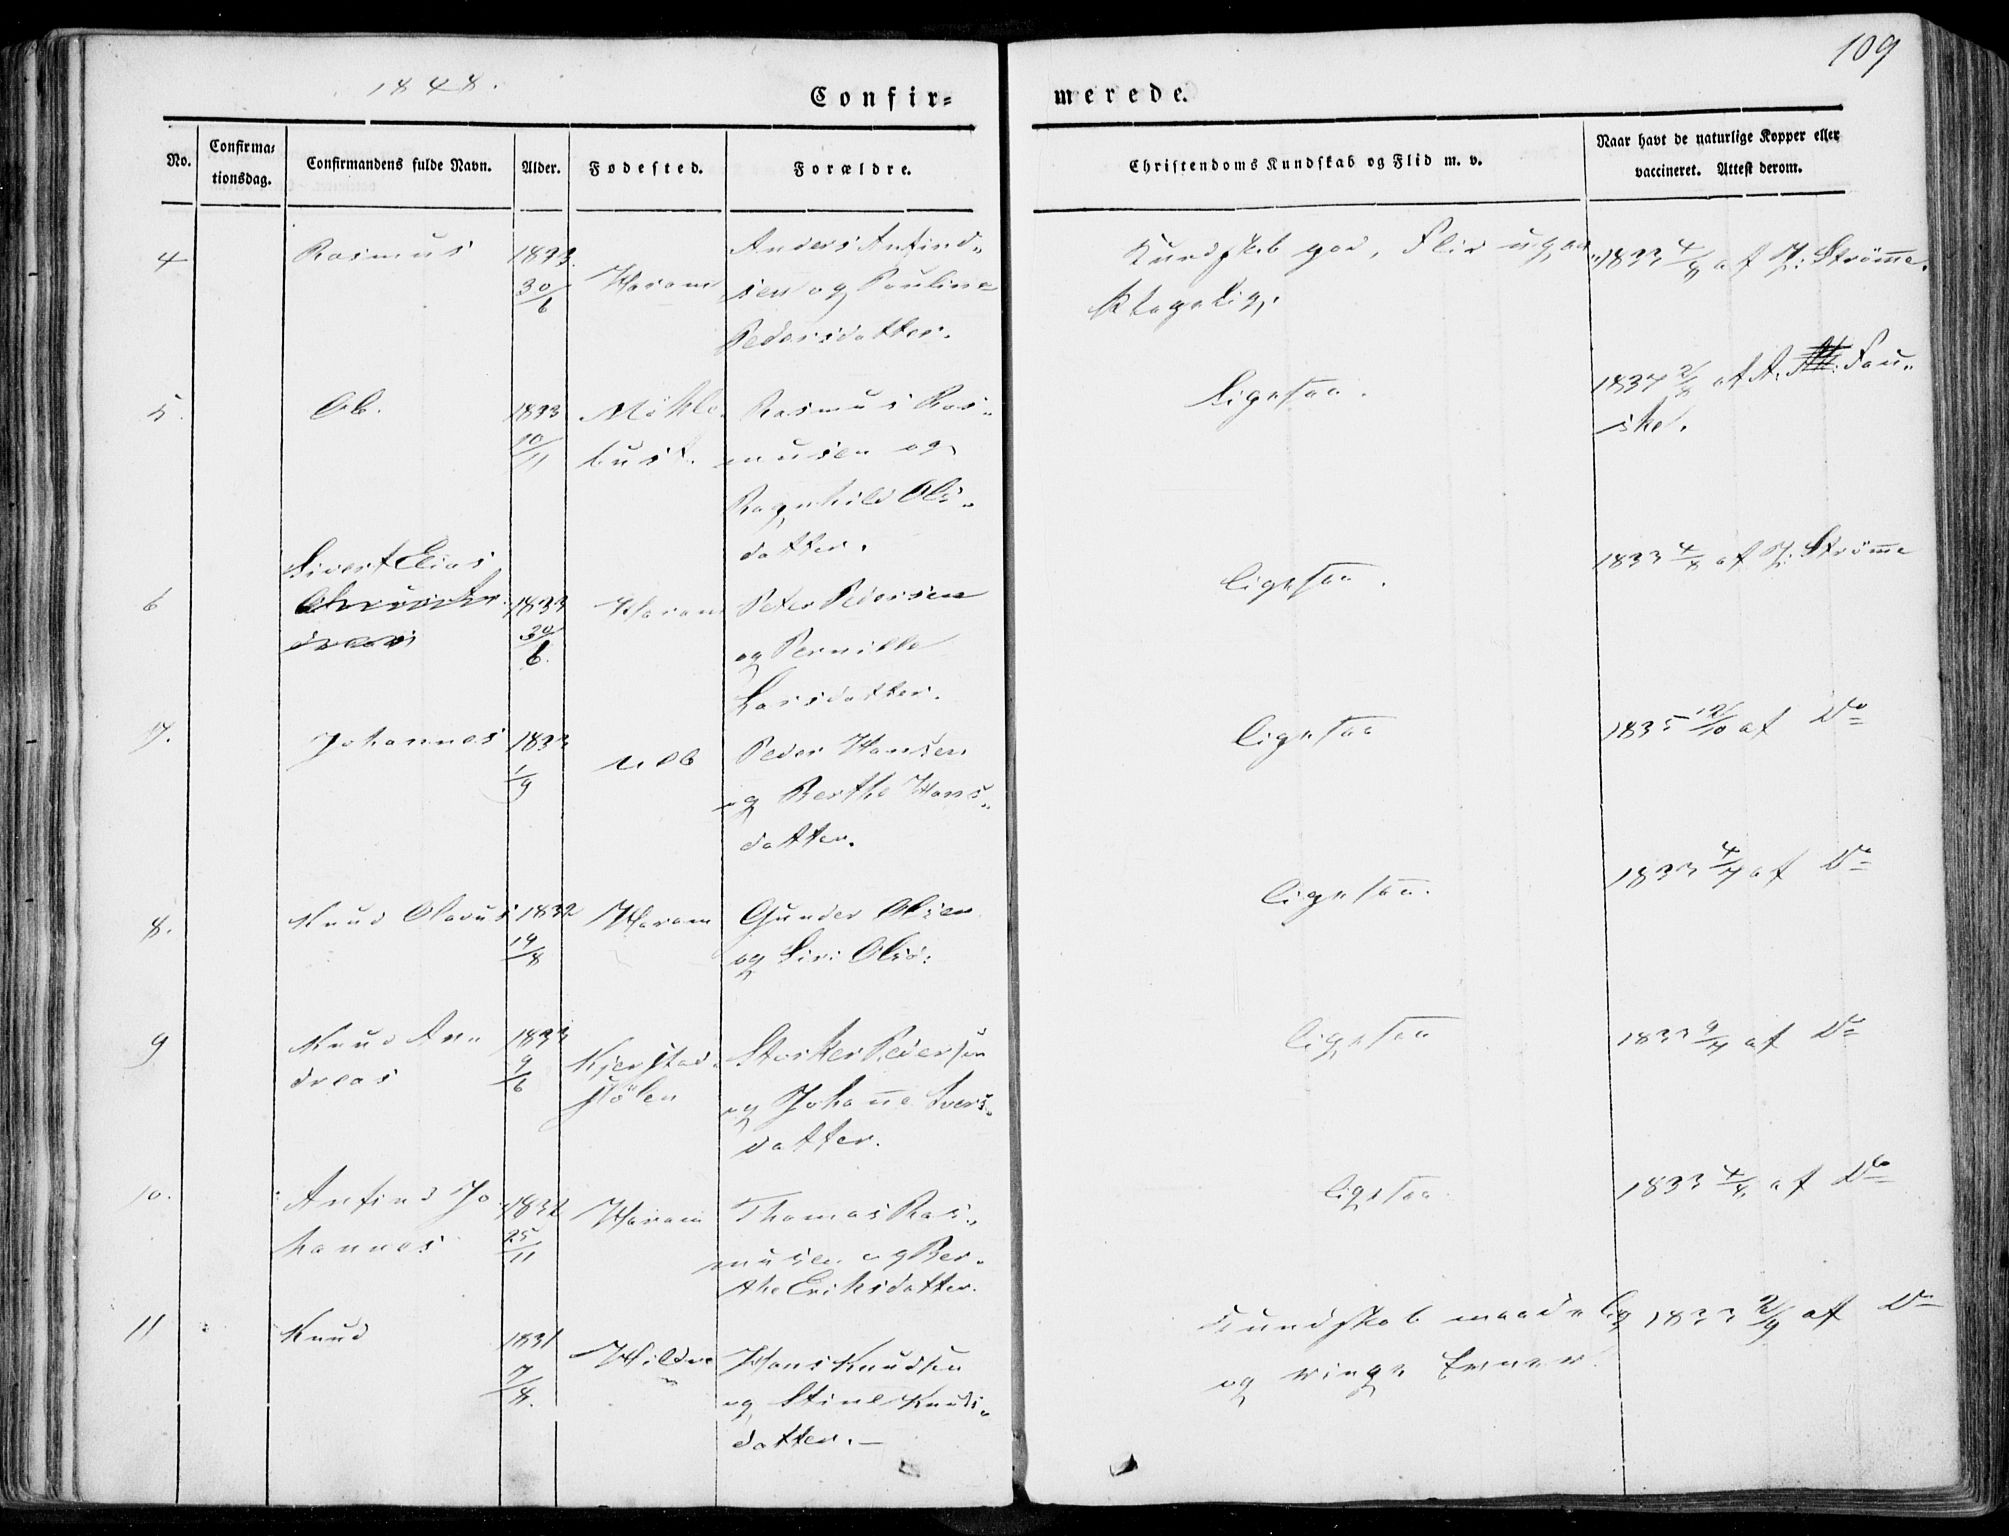 109
1848.
Confir=
merede.
No.
Confirma=
tionsdag.
Confirmandens fulde Navn.
Alder.
Fødested.
Forældre.
Christendoms Kundskab og Flid m. v.
Naar havt de naturlige Kopper eller
vaccineret. Attest derom.
4
Rasmus
1833.
30/6
Haram
Anders Anfind„
sen og Pauline
Pedersdatter.
Kundskab god, Flid
1833 4/8 af J: Strøme.
5.
Ole.
1833
10/11
bust.
Rasmus Ras„
musen og
Ragnhild Ols„
datter.
Ligesaa.
1834 af A. Fau„
ske.
6
Sivert Elias
1833
30/6.
Haram
Peter Pedersen
og Pernille
Larsdatter.
ligesaa.
1833 4/8 af J: Strøme
7.
Johannes
1833
1/9
Ulle
Peder Hansen
og Berthe Hans„
datter.
ligesaa
1835 12/10 af Do
8.
Knud Olaus
1832
19/8
Haram
Gunder Olsen
og Siri Olsd:
ligesaa.
1833 4/7 af Do
9
Knud An„
dreas
1833
9/6
Kjerstad„
hølen
Pedersen
og Johane Ivers„
datter.
ligesaa
1833 af Do
10.
Anfind Jo
hannes
1832
25/11
Haram
Thomas Ras„
musen og Ber„
the Eriksdatter.
ligesaa
1833 4/8 af Do
11
Knud
1831
7/8.
Hildre
Hans Knudsen
og Stine Knuds„
datter.—
Kundskab maadelig
og ringe Evner.
1833 2/9 af Do